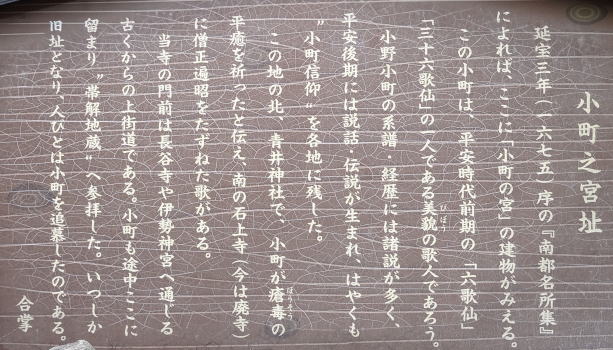 小町之宮址
延宝三年(一六七五)序の『南都名所集』
によれば、ここに「小町の宮」の建物がみえる。
この小町は、平安時代前期の「六歌仙」
「三十六歌仙」の一人である美貌の歌人であろう。
小野小町の系譜・経歴には諸説が多く、
平安後期には説話・伝説が生まれ、はやくも
〝小町信仰〟を各地に残した。
この地の北、青井神社で、小町が瘡毒の
平癒を祈ったと伝え、南の石上寺(今は廃寺)
に僧正遍昭をたずねた歌がある。
当寺の門前は長谷寺や伊勢神宮へ通じる
古くからの上街道である。小町も途中ここに
留まり〝帯解地蔵〟へ参拝した。いつしか
旧址となり、人びとは小町を追慕したのである。
合掌